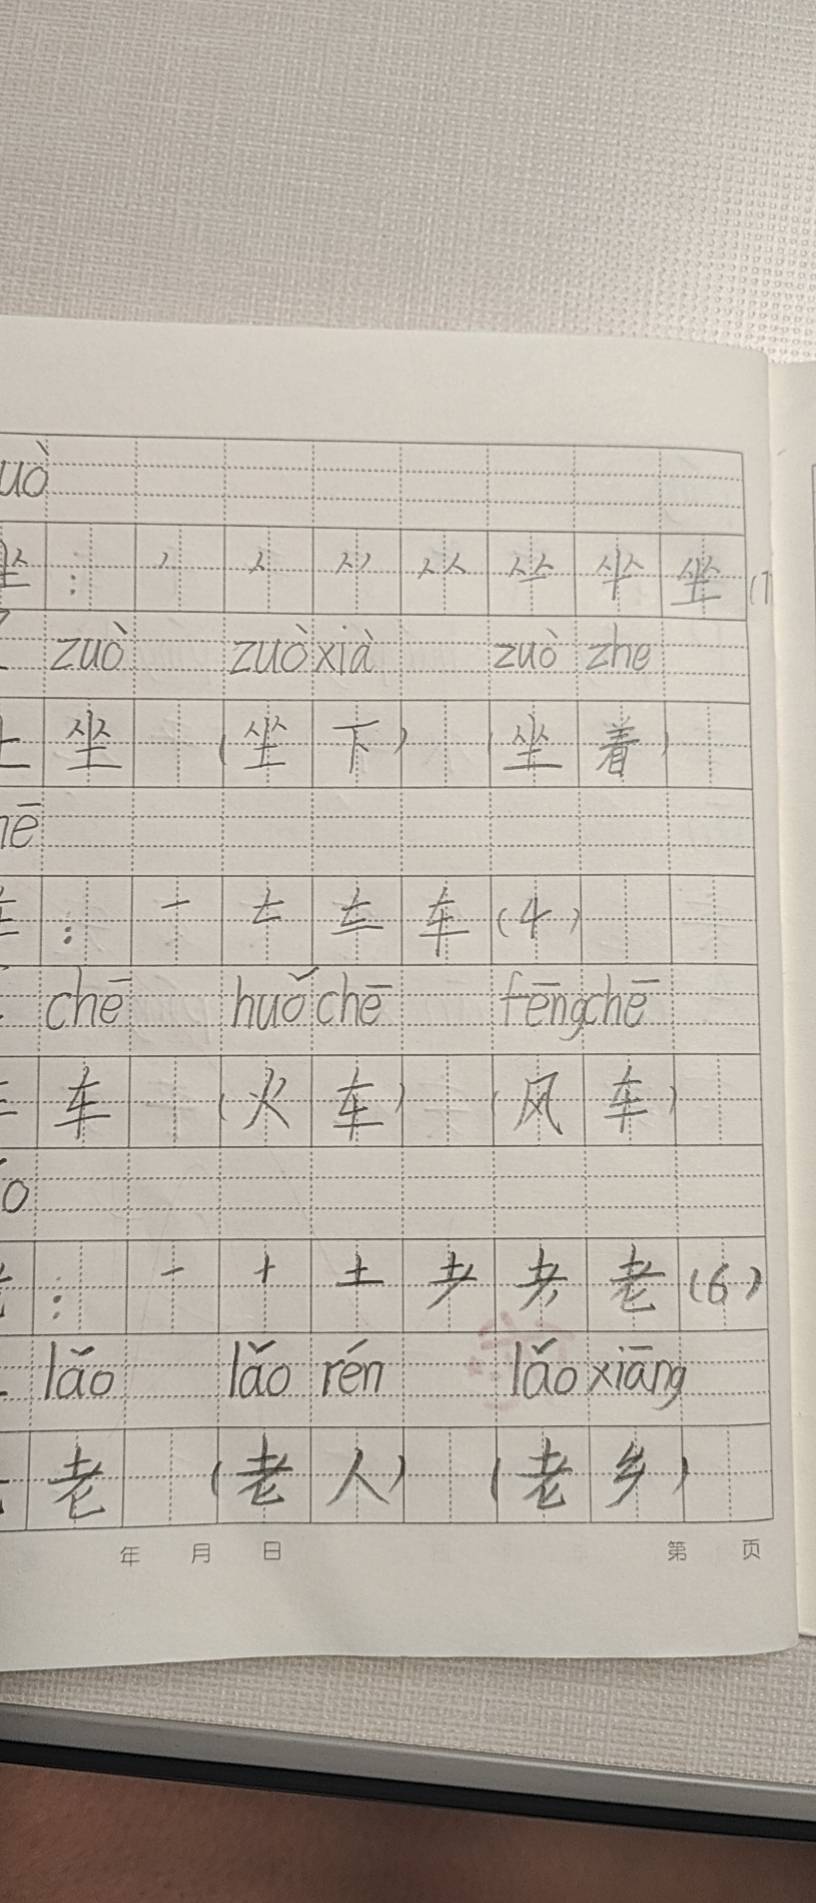 uò
坐 : 丿 人 人丿 人人 坐 (7
zuò zuò xià zuò zhe
坐 (坐 下) (坐 着)
hē
车 : 一 车 (4)
chē huǒ chē fēng chē
车 (火 车) (风 车)
o
老 : 一 十 土 耂 老 (6)
lǎo lǎo rén lǎo xiāng
老 (老 人) (老 乡)
年 月 日 第 页